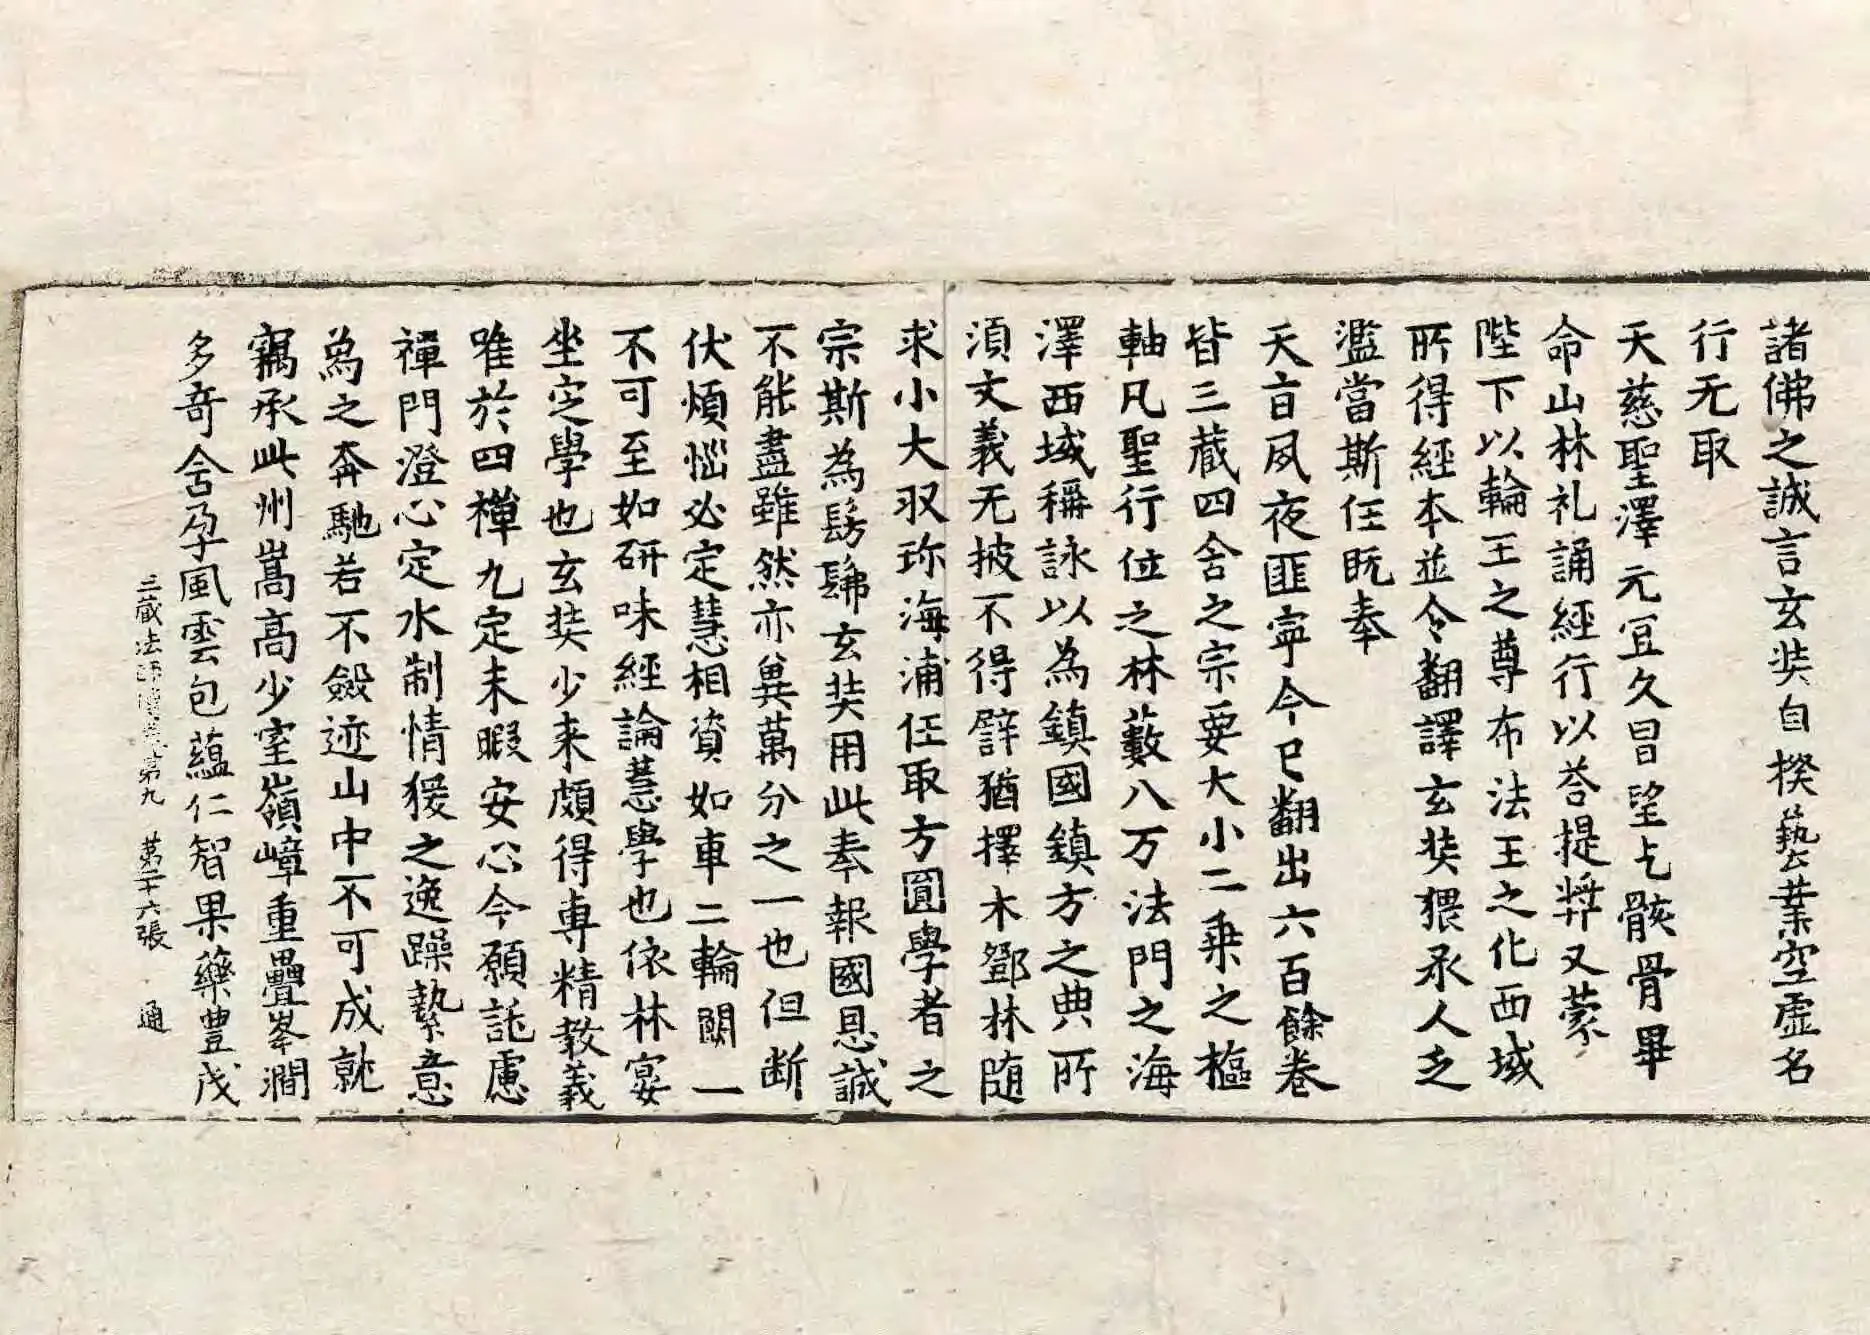 諸佛之誠言玄奘自揆藝業空虛名
行无取
天慈聖澤元冝久冒望乞骸骨畢
命山林礼誦經行以荅提奬又蒙
陛下以輪王之尊布法王之化西域
所得經本並令翻譯玄奘猥承人乏
濫當斯任既奉
天旨夙夜匪寧今已翻出六百餘卷
皆三藏四含之宗要大小二乗之樞
軸凡聖行位之林藪八万法門之海
澤西域稱詠以為鎮國鎮方之典所
須文義无披不得譬猶擇木鄧林随
求小大収珎海浦任取方圓學者之
宗斯為髣髴玄奘用此奉報國恩誠
不能盡雖然亦兾萬分之一也但断
伏煩惱必定慧相資如車二輪闕一
不可至如研味經論慧學也依林宴
坐定學也玄奘少来頗得専精教義
唯於四禅九定未暇安心今願託慮
禪門澄心定水制情猨之逸躁縶意
為之奔馳若不斂迹山中不可成就
竊承此州嵩髙少室嶺嶂重疊峯澗
多奇含孕風雲包蘊仁智果藥豊茂
三藏法師傳卷第九 第二十六張 通